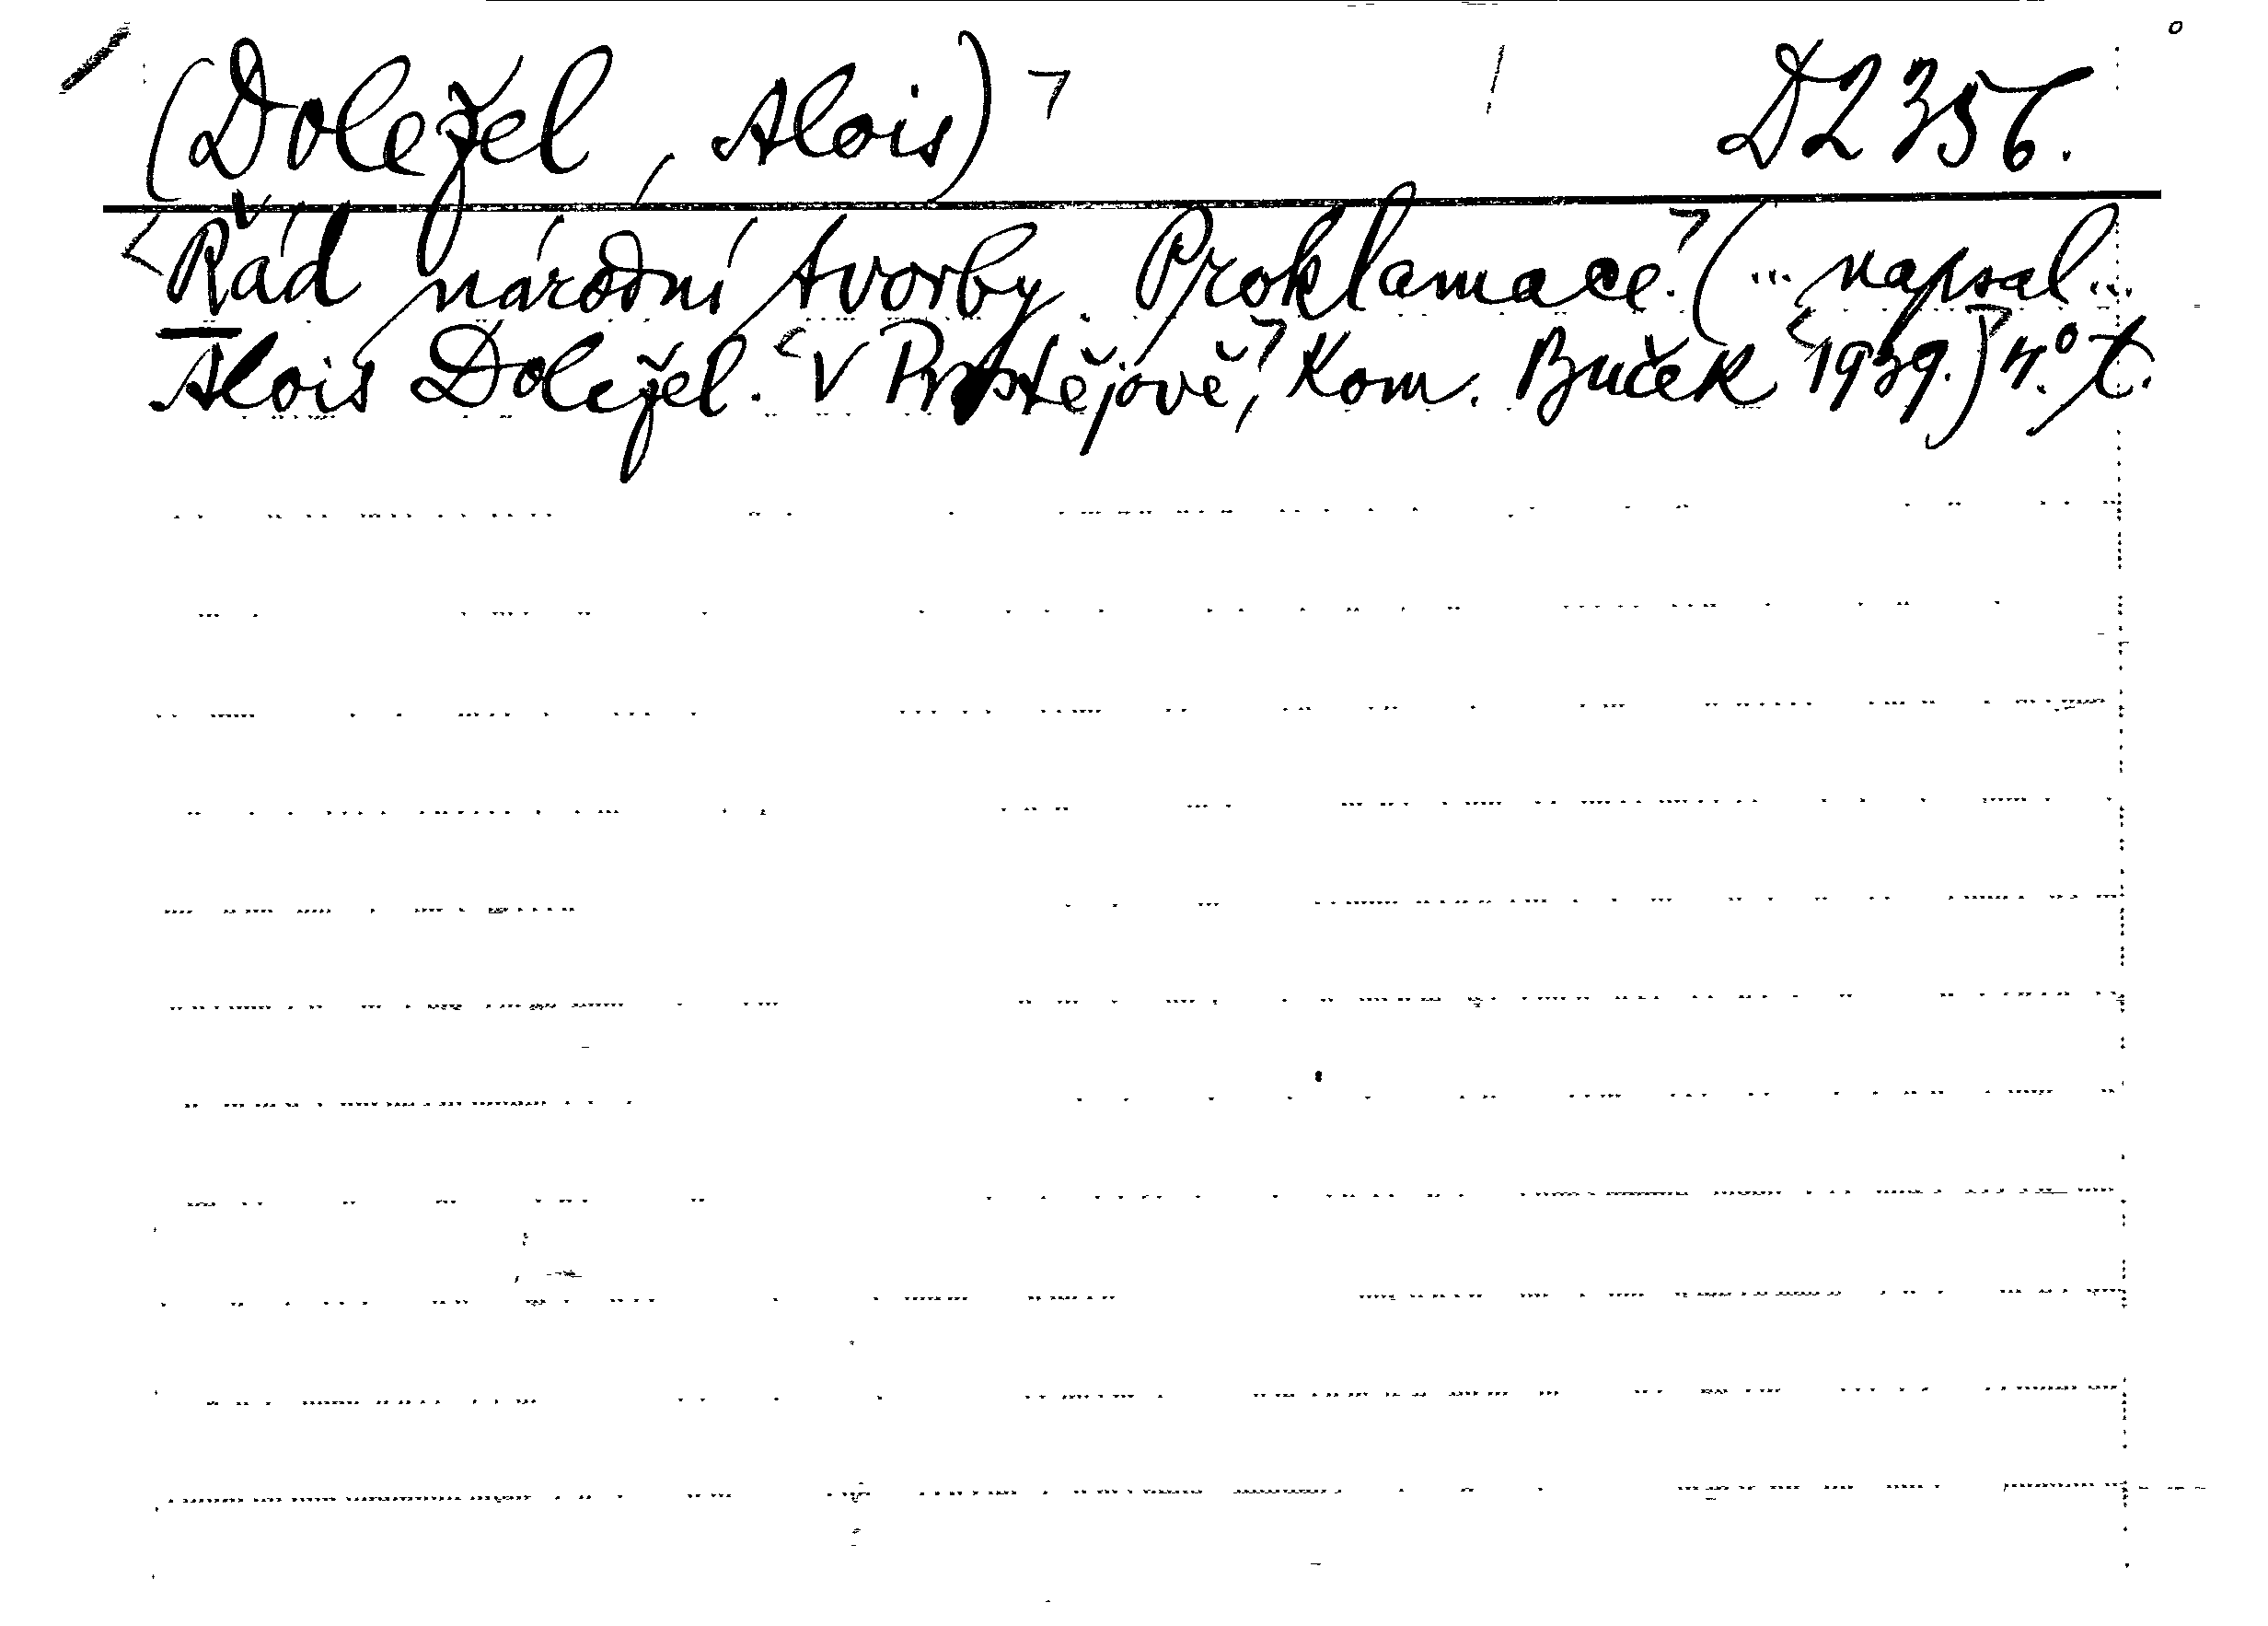 (Doležel, Alois)⁊ D2356.
<Řád národní tvorby. Proklamace.⁊ (... napsal...
Alois Doležel. <V Prostějově,⁊ Kom. Buček <1939.⁊) 4.° t.